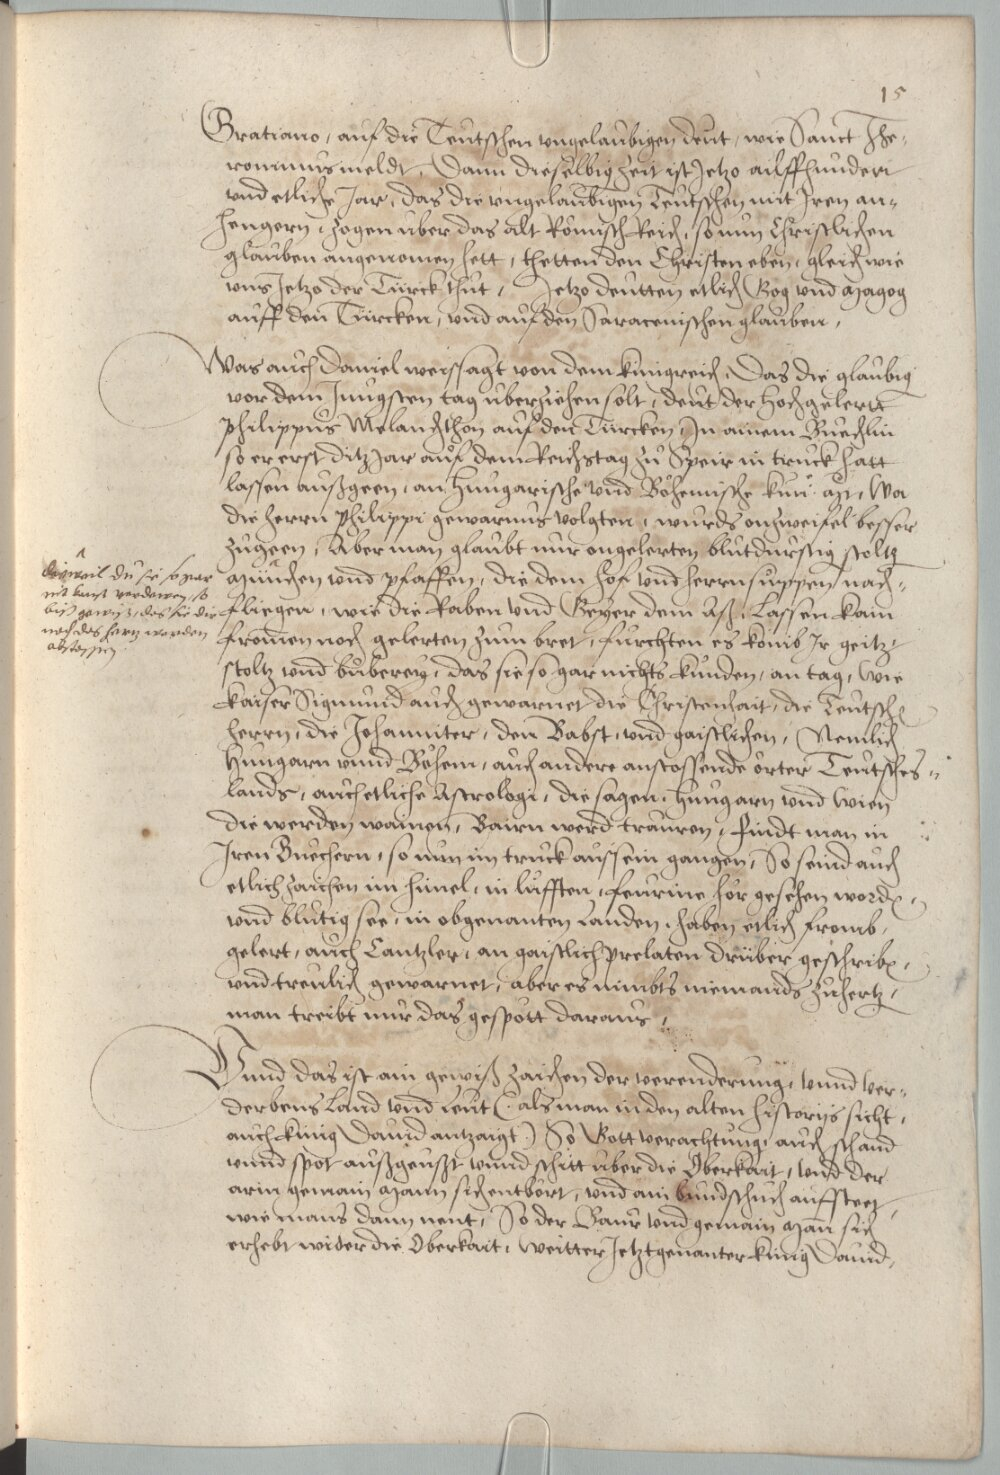 15
Gratiano, auf die Teutschen ungelaubigen deut, wie Sanct Jhe-
ronimus meldt, Dann dieselbig zeit ist Jetzo ailffhundert
und etliche Jar, das die ungelaubigen Teutschen mit Jren an-
hengern, zogen uber das alt Römisch Reich, so nun Christlichen
glauben angenomen hett, thetten den Christen eben, gleich wie
uns Jetzo der Türck thut, Jetzo deutten etlich Gog und Magog
auff den Türcken, und auf den Saracenischen glauben,
Was auch Daniel weissagt von dem künigreich, Das die glaubig
vor dem Jungsten tag uberziehen solt, deut der hochgelertt
Philippus Melanchthon auf den Türcken, Jn ainem Buechlin
so er erst ditz Jar auf dem Reichstag zu Speir in truck hatt
lassen außgeen, an Hungarische und Böhemische kün: Mt, Wa
die herrn Philippi gewarnus volgten, wurds onzweifel besser
zugeen, Aber man glaubt nur ongelerten blutdurstig stoltz
München und Pfaffen, die dem hof und herrnsuppen nach-
fliegen, wie die Raben und Geyer dem Aß, Lassen kain
fromen noch gelerten zum bret, furchten es komb Jr geitz,
stoltz und büberey, das sie so gar nichts kunden, an tag, Wie
kaiser Sigmund auch gewarnet die Christenhait, die Teutsch
herrn, die Johanniter, den Babst, und gaistlichen, Nemlich
Hungarn unnd Behem, auch andere anstossende örter Teutsches-
lands, auch etliche Astrologi, die sagen, Hungarn und Wien
die werden wainen, Bairn werd trauren, findt man in
Jren Buechern, so nun im truck auß sein gangen, So seind auch
etlich zaichen im himel, in lufften, feurine hör gesehen word,
und blutig see, in obgenanten Landen, haben etlich fromb,
gelert, auch Cantzler, an gaistlich prelaten drüber geschrib,
und treulich gewarnet, aber es nimbts niemands zuhertz,
man treibt nur das gespött daraus,
dieweil du sie so gar
nit
gewiß, das sie die
noch des herrn werden
abstossen
Unnd das ist ain gewiß zaichen der verenderung, unnd ver-
derbens Land und Leut (als man in den alten historijs sicht,
auch künig David antzaigt) So Gott verachtung, auch schand
unnd spot außgeußt unnd schitt uber die Oberkait, und der
arm gemain Mann sich entbört, und ain bundschuch auffsteet,
wie mans dann nent, So der Baur und gemain Man sich
erhebt wider die Oberkait, Weitter Jetztgenanter künig David,